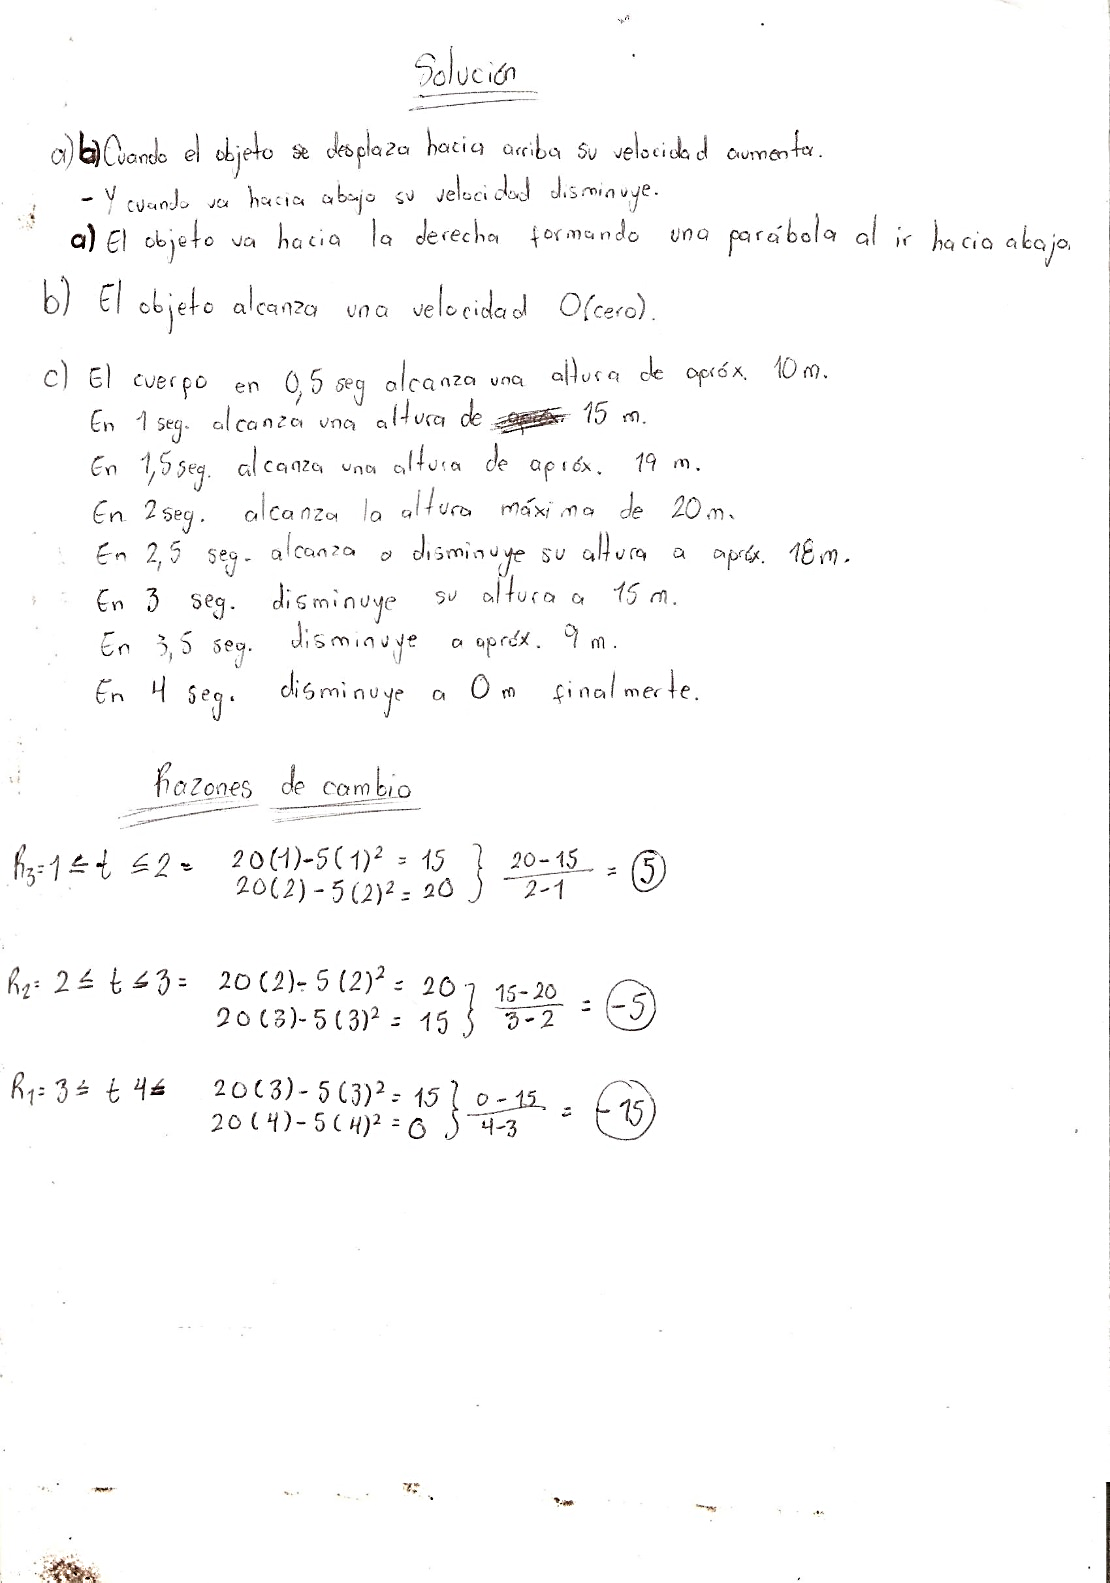 Solución
a) b) Cuando el objeto se desplaza hacia arriba su velocidad aumenta.
- Y cuando va hacia abajo su velocidad disminuye.
a) El objeto va hacia la derecha formando una parábola al ir hacia abajo.
b) El objeto alcanza una velocidad 0(cero).
c) El cuerpo en 0,5 seg alcanza una altura de apróx. 10 m.
En 1 seg. alcanza una altura de 15 m.
En 1,5 seg. alcanza una altura de apróx. 19 m.
En 2 seg. alcanza la altura máxima de 20 m.
En 2,5 seg. alcanza o disminuye su altura a apróx. 18 m.
En 3 seg. disminuye su altura a 15 m.
En 3,5 seg. disminuye a apróx. 9 m.
En 4 seg. disminuye a 0 m finalmente.
Razones de cambio
R3= 1 ≤ t ≤ 2 = 20(1)-5(1)² = 15 } 20-15 / 2-1 = 5
20(2)-5(2)² = 20
R2= 2 ≤ t ≤ 3 = 20(2)-5(2)² = 20 } 15-20 / 3-2 = -5
20(3)-5(3)² = 15
R1= 3 ≤ t 4 ≤ 20(3)-5(3)² = 15 } 0-15 / 4-3 = -15
20(4)-5(4)² = 0